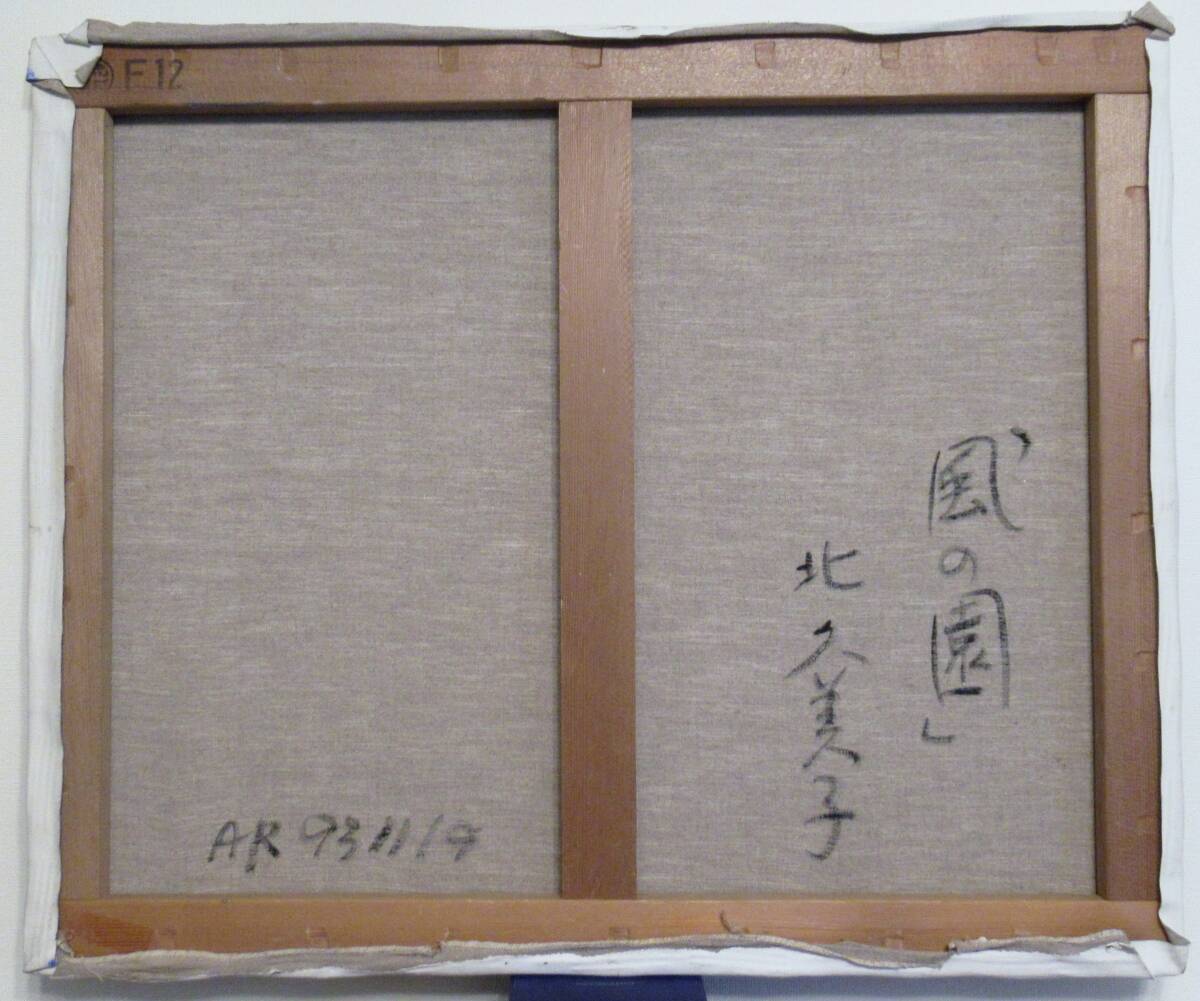 F12
「風の園」
北久美子
AR 931119